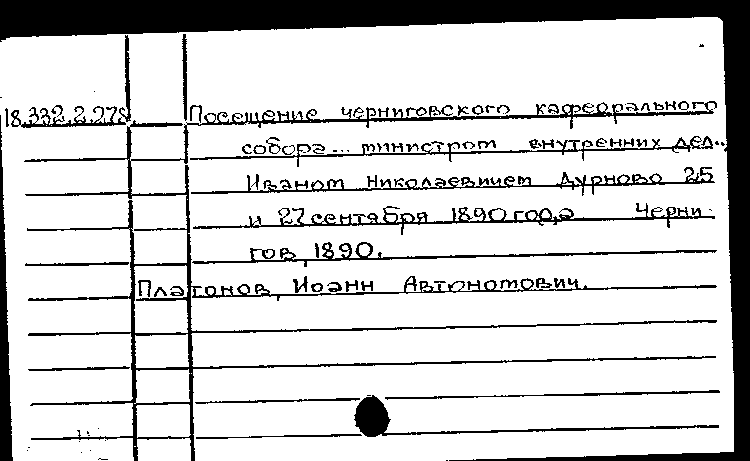 18.332.2.278. Посещение черниговского кафедрального
собора... министром внутренних дел..,
Иваном Николаевичем Дурново 25
и 27 сентября 1890 года Черни-
гов, 1890.
Платонов, Иоанн Автономович.